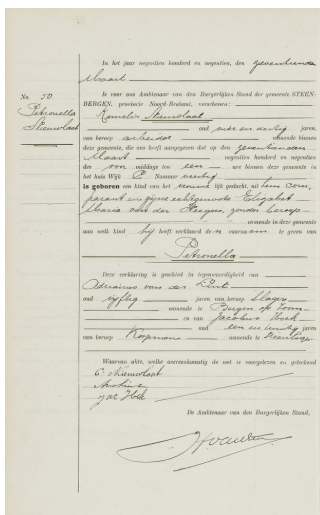 No. 50
Petronella
Nieuwlaat
In het jaar negentien honderd en negentien, den zeventienden
Maart
is voor ons Ambtenaar van den Burgerlijken Stand der gemeente STEEN-
BERGEN, provincie Noord-Brabant, verschenen:
Kornelis Nieuwlaat
oud dertig jaren,
van beroep arbeider wonende binnen
deze gemeente, die ons heeft aangegeven dat op den zeventienden
Maart negentien honderd en negentien
des voormiddags ten een ure binnen deze gemeente in
het huis Wijk Nummer veertig
is geboren een kind van het vrouwelijk geslacht, uit hem com-
parant en zijne echtgenoote Elizabet
Maria van der Heijden, zonder beroep
wonende in deze gemeente
aan welk kind hij heeft verklaard den voornaam te geven van
Petronella
Deze verklaring is geschied in tegenwoordigheid van
Adrianus van der Linde
oud vijftig jaren van beroep Slager
wonende te Bergen op Zoom
en van Jacobus Hoek
oud een en jaren
van beroep Koopman wonende te Steenbergen
Waarvan akte, welke overeenkomstig de wet is voorgelezen en geteekend
C Nieuwlaat
Jac Hoek
De Ambtenaar van den Burgerlijken Stand,